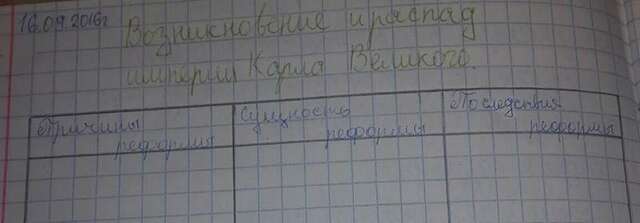 16.09.2016г
Возникновение и распад
империи Карла Великого.
Причины
реформы
Сущность
реформы
Последствия
реформы